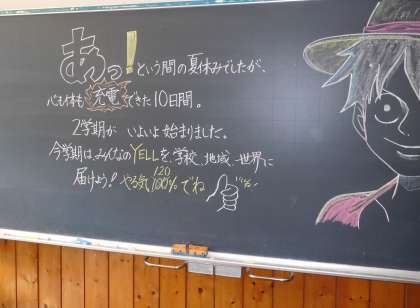 あっ!という間の夏休みでしたが、
心も体も充電できた10日間。
2学期がいよいよ始まりました。
今学期は、みんなのYELLを、学校、地域、世界に
届けよう! やる気120%でね